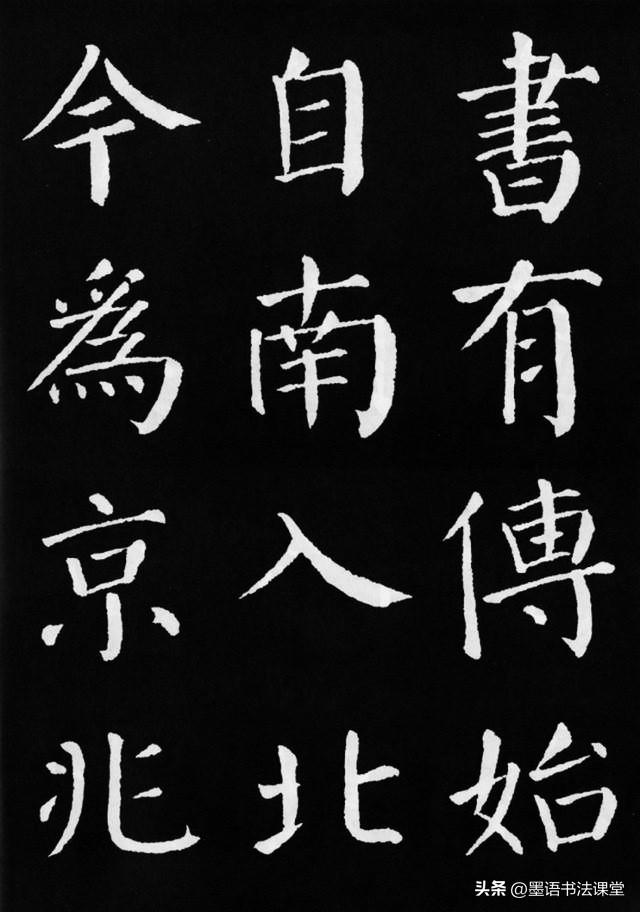 書有傳始
自南入北
今為京兆
头条 @墨语书法课堂